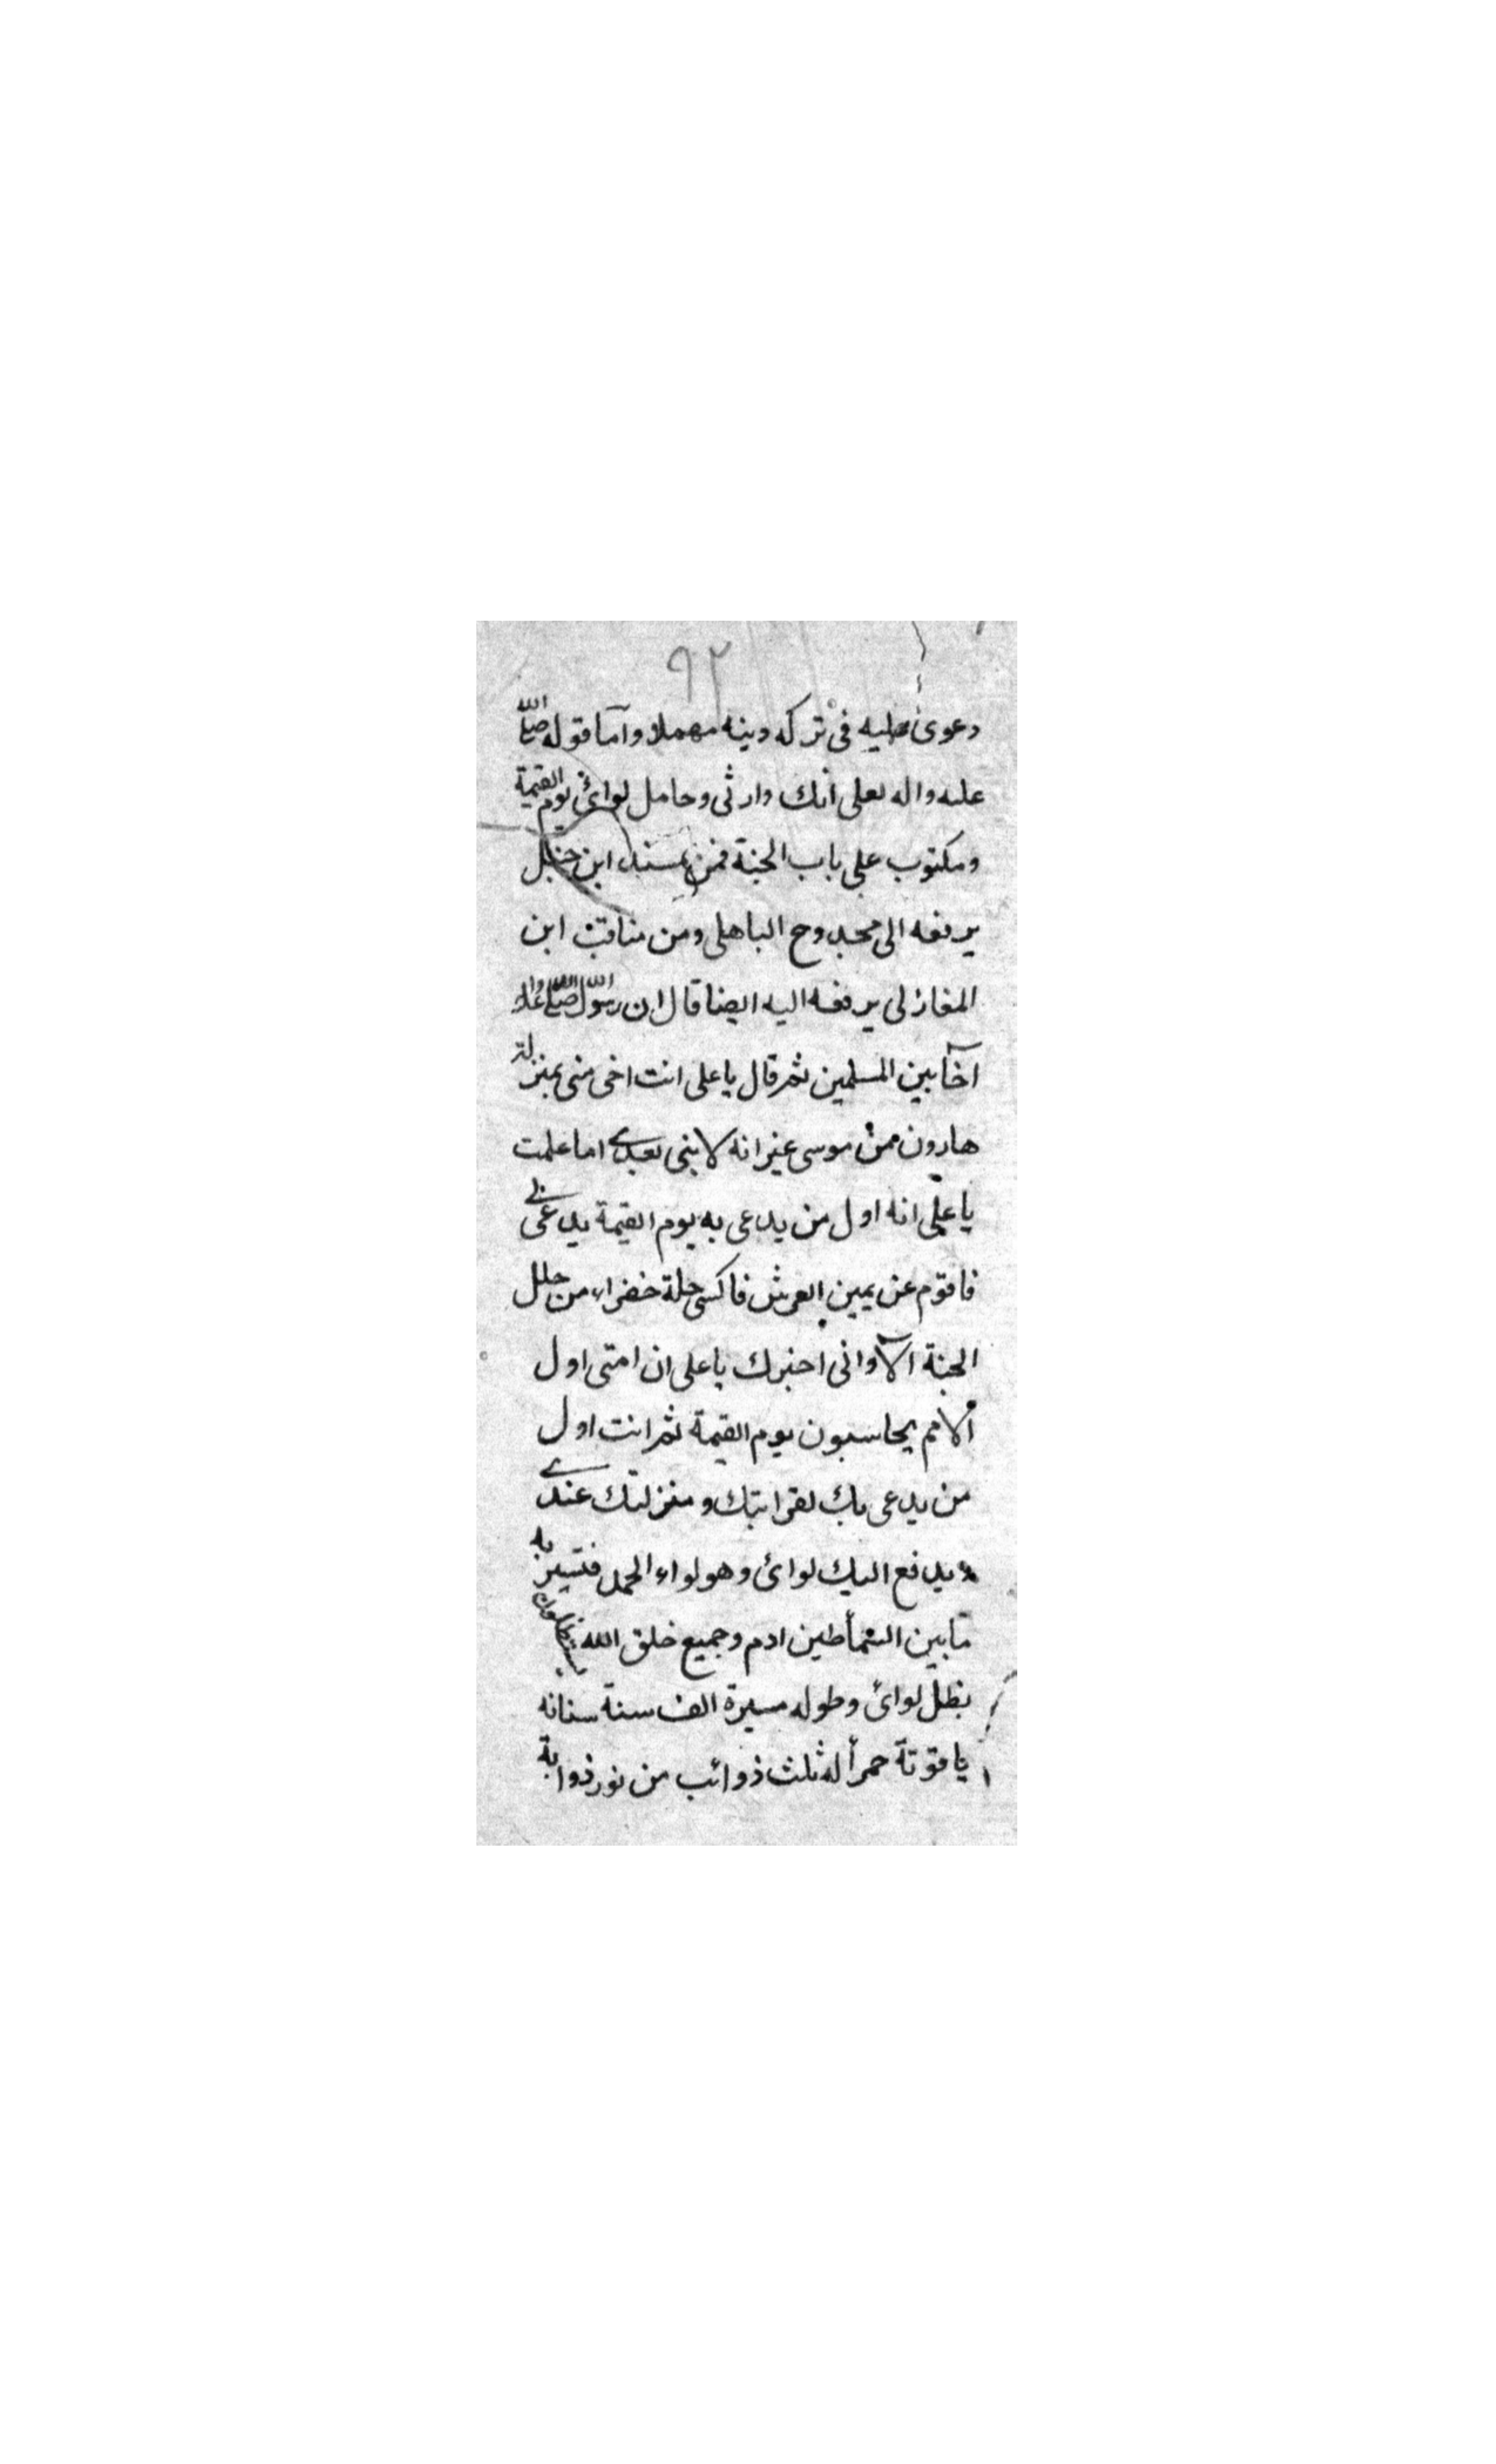 ٩٢
دعوى عليه فى تركه دينه مهملا وأما قوله صلى الله
عليه واله لعلى انك وارثى وحامل لوائى يوم القيمة
ومكتوب على باب الجنة فمن مسند ابن حنبل
يرفعه الى محدوح الباهلى ومن مناقب ابن
المغازلى يرفعه اليه ايضا قال ان رسول الله صلى الله عليه واله
آخا بين المسلمين ثم قال يا على انت اخى منى بمنزلة
هارون من موسى غير انه لا نبى بعدى اما علمت
يا على انه اول من يدعى به يوم القيمة يدعى بى
فاقوم عن يمين العرش فاكسى حلة خضراء من حلل
الجنة الا وانى اخبرك يا على ان امتى اول
الامم يحاسبون يوم القيمة ثم انت اول
من يدعى بك لقرابتك ومنزلتك عندى
يدفع اليك لوائى وهو لواء الحمد فتسير به
ما بين السماطين ادم وجميع خلق الله يستظلون
بظل لوائى وطوله مسيرة الف سنة سنانه
ياقوتة حمرأ له ثلث ذوائب من نور ذوابة